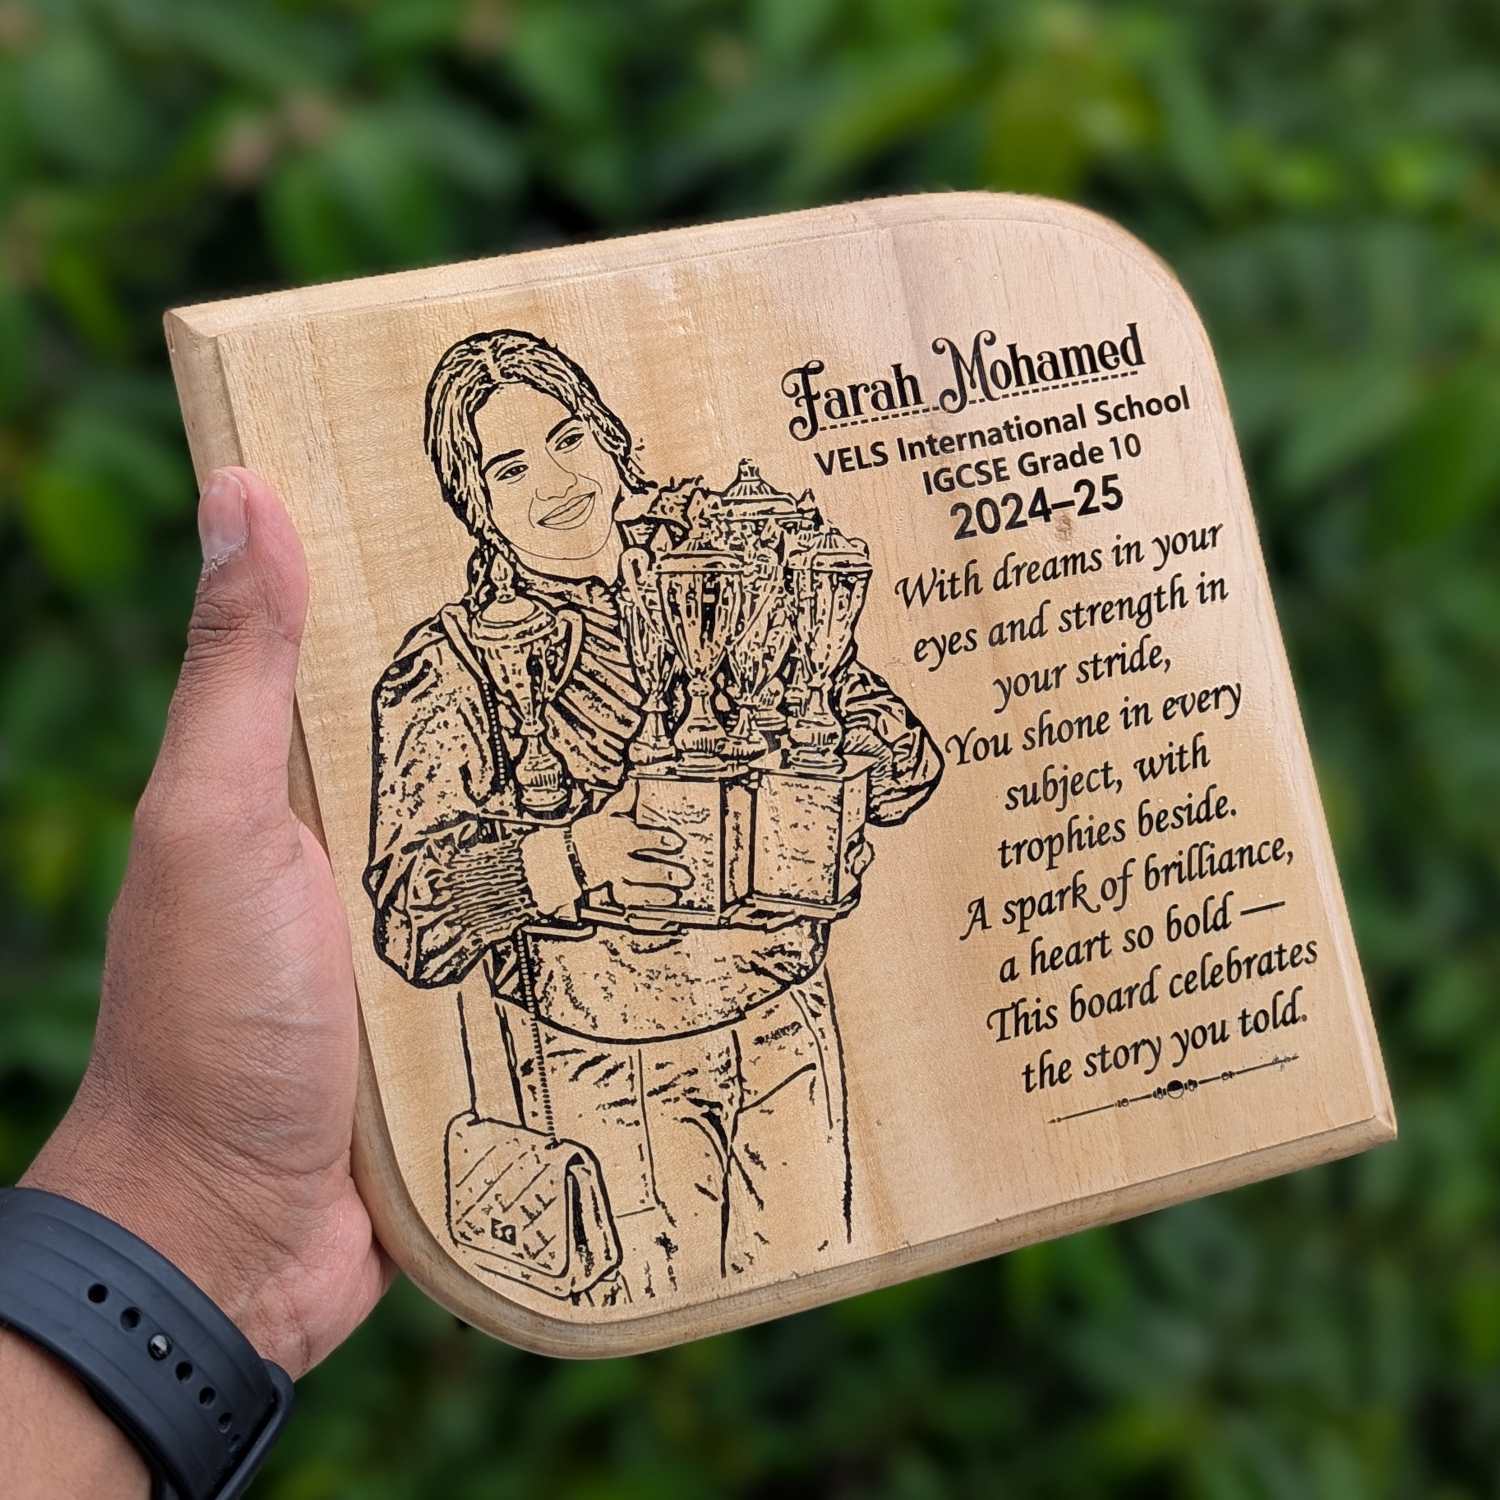 Farah Mohamed
VELS International School
IGCSE Grade 10
2024–25
With dreams in your
eyes and strength in
your stride,
You shone in every
subject, with
trophies beside.
A spark of brilliance,
a heart so bold —
This board celebrates
the story you told.